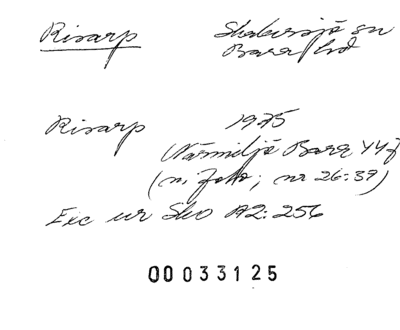 Risarp Skabersjö sn
Bara hd
Risarp 1975
Närmiljö Bara 447
(m. foto; nr 26:39)
Exc ur Sko A2:256
00033125